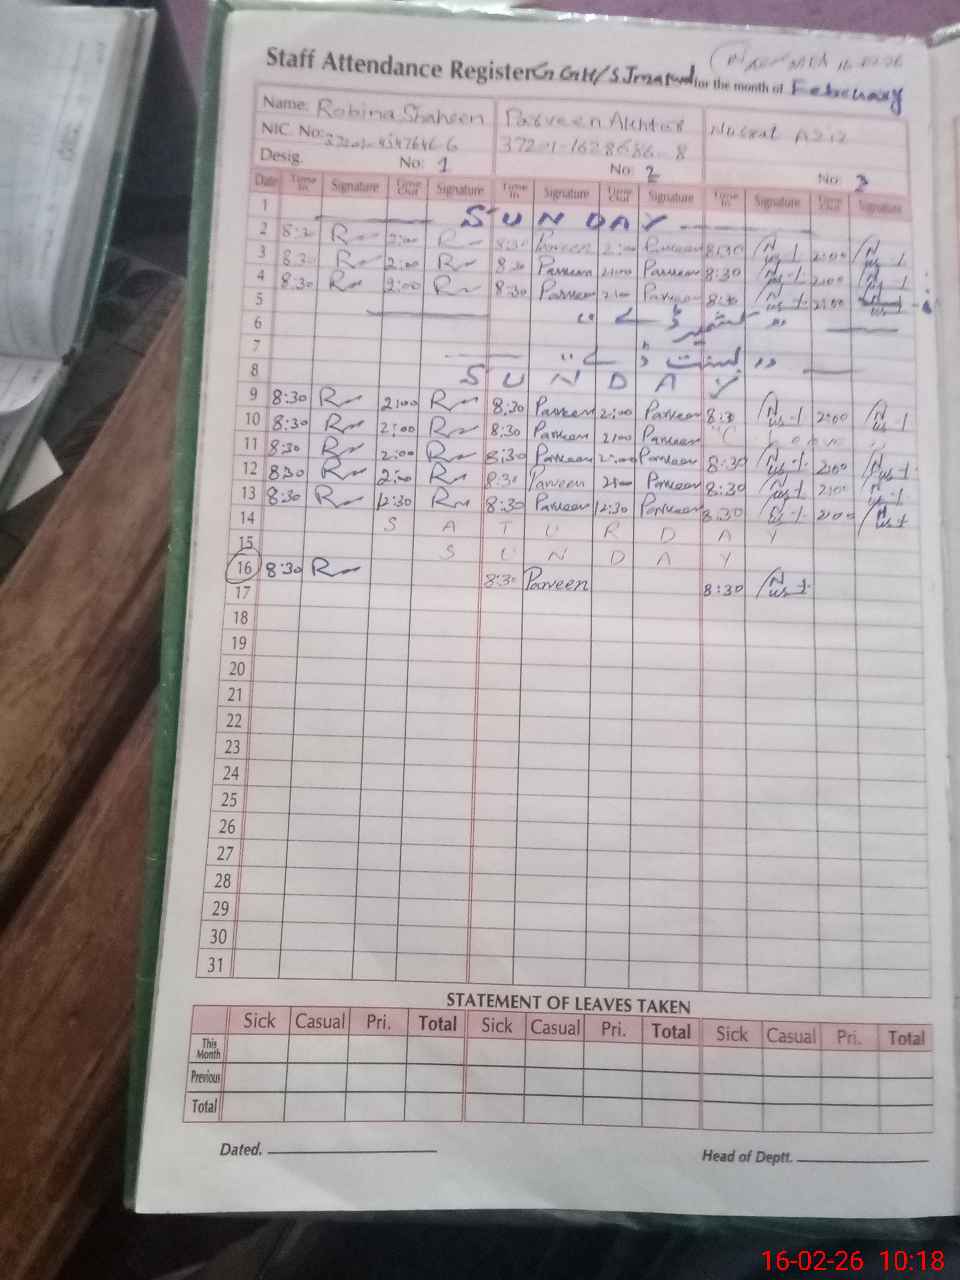 Staff Attendance Register for the month of February
Name: Robina Shaheen Parveen Akhtar Nusrat Aziz
NIC. No: 37201-1628686-8
Desig. No: 1 No: 2 No: 3
Date Time In Signature Time Out Signature Time In Signature Time Out Signature Time In Signature Time Out Signature
1 SUNDAY
2 8:30 R 2:00 R 8:30 Parveen 2:00 Parveen 8:30 2:00
3 8:30 R 2:00 R 8:30 Parveen 2:00 Parveen 8:30 2:00
4 8:30 R 2:00 R 8:30 Parveen 2:00 Parveen 8:30 2:00
5 کشمیر ڈے
6
7 بسنت ڈے
8 SUNDAY
9 8:30 R 2:00 R 8:30 Parveen 2:00 Parveen 8:30 2:00
10 8:30 R 2:00 R 8:30 Parveen 2:00 Parveen
11 8:30 R 2:00 R 8:30 Parveen 2:00 Parveen 8:30 2:00
12 8:30 R 2:00 R 8:30 Parveen 2:00 Parveen 8:30 2:00
13 8:30 R 12:30 R 8:30 Parveen 12:30 Parveen 8:30 2:00
14 SATURDAY
15 SUNDAY
16 8:30 R 8:30 Parveen 8:30
17
18
19
20
21
22
23
24
25
26
27
28
29
30
31
STATEMENT OF LEAVES TAKEN
Sick Casual Pri. Total Sick Casual Pri. Total Sick Casual Pri. Total
This Month
Previous
Total
Dated. Head of Deptt.
16-02-26 10:18